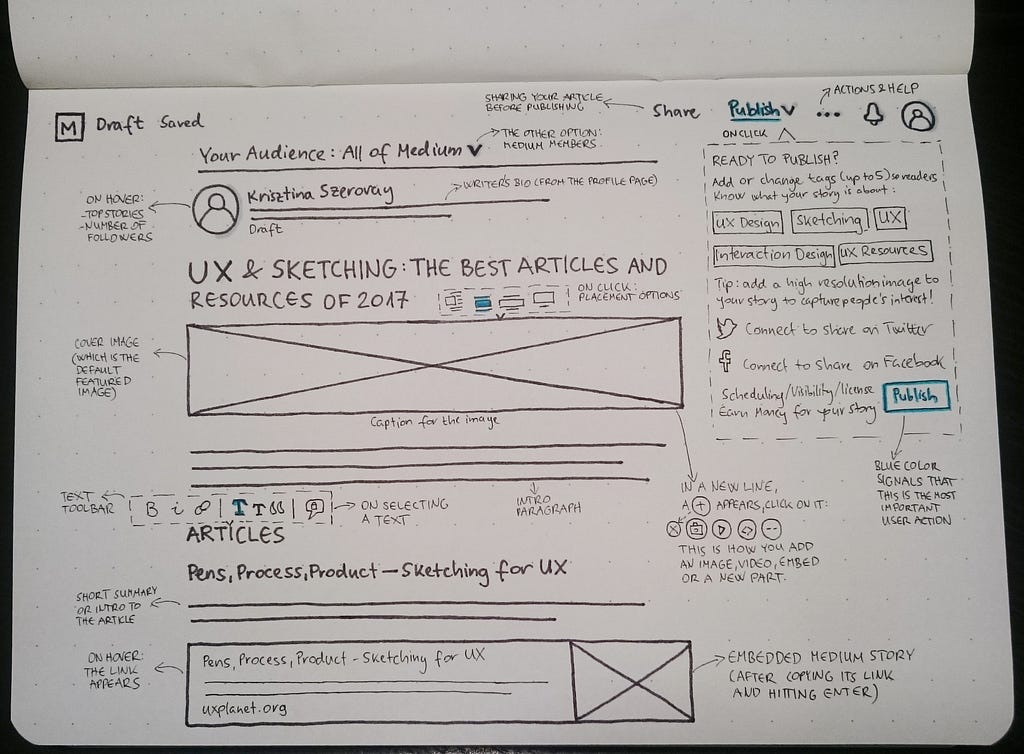 SHARING YOUR ARTICLE
BEFORE PUBLISHING
ACTIONS & HELP
M Draft Saved
Share Publish
ON CLICK
Your Audience: All of Medium
THE OTHER OPTION:
MEDIUM MEMBERS
Krisztina Szerovay
WRITER'S BIO (FROM THE PROFILE PAGE)
Draft
ON HOVER:
-TOP STORIES
-NUMBER OF
FOLLOWERS
READY TO PUBLISH?
Add or change tags (up to 5) so readers
know what your story is about:
UX Design Sketching UX
Interaction Design UX Resources
Tip: add a high resolution image to
your story to capture people's interest!
Connect to share on Twitter
f Connect to share on Facebook
Scheduling/Visibility/license
Earn Money for your story
Publish
BLUE COLOR
SIGNALS THAT
THIS IS THE MOST
IMPORTANT
USER ACTION
UX & SKETCHING: THE BEST ARTICLES AND
RESOURCES OF 2017
ON CLICK:
PLACEMENT OPTIONS
COVER IMAGE
(WHICH IS THE
DEFAULT
FEATURED
IMAGE)
Caption for the image
INTRO
PARAGRAPH
IN A NEW LINE,
A + APPEARS, CLICK ON IT:
THIS IS HOW YOU ADD
AN IMAGE, VIDEO, EMBED
OR A NEW PART.
TEXT
TOOLBAR
B i T T
ON SELECTING
A TEXT
ARTICLES
Pens, Process, Product — Sketching for UX
SHORT SUMMARY
OR INTRO TO
THE ARTICLE
ON HOVER:
THE LINK
APPEARS
Pens, Process, Product - Sketching for UX
uxplanet.org
EMBEDDED MEDIUM STORY
(AFTER COPYING ITS LINK
AND HITTING ENTER)